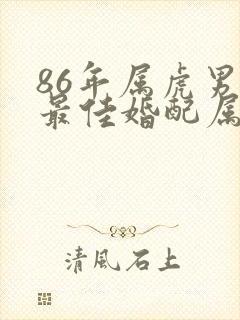 86年属虎男
最佳婚配属
清風石上